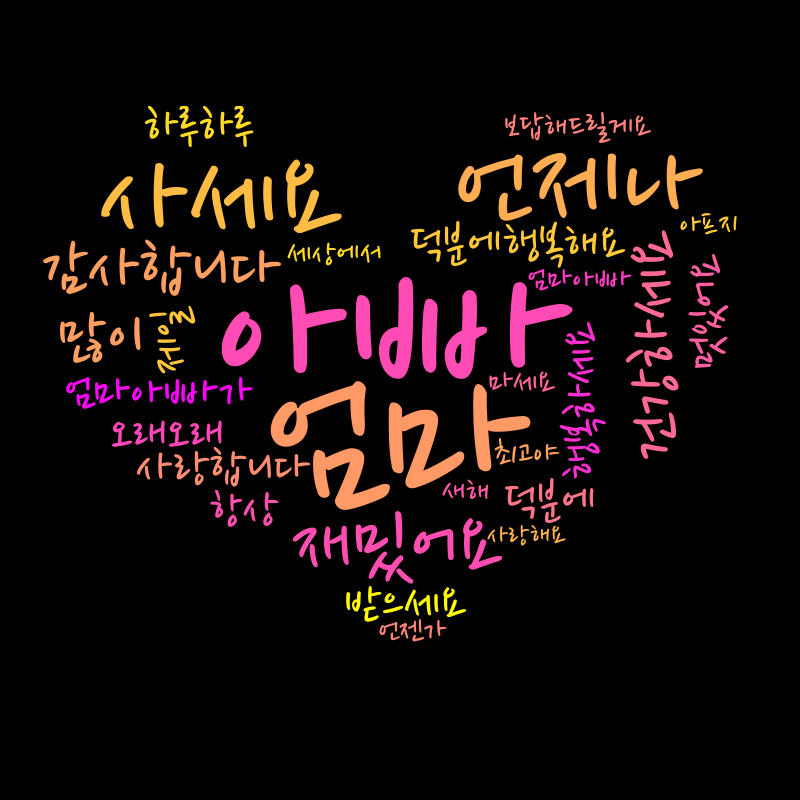 하루하루
보답해드릴게요
사세요
언제나
아프지
덕분에행복해요
감사합니다
세상에서
엄마아빠
아빠
많이
제일
건강하세요
행복하세요
엄마아빠가
마세요
엄마
오래오래
사랑합니다
최고야
새해
덕분에
항상
재밌어요
사랑해요
받으세요
언젠가